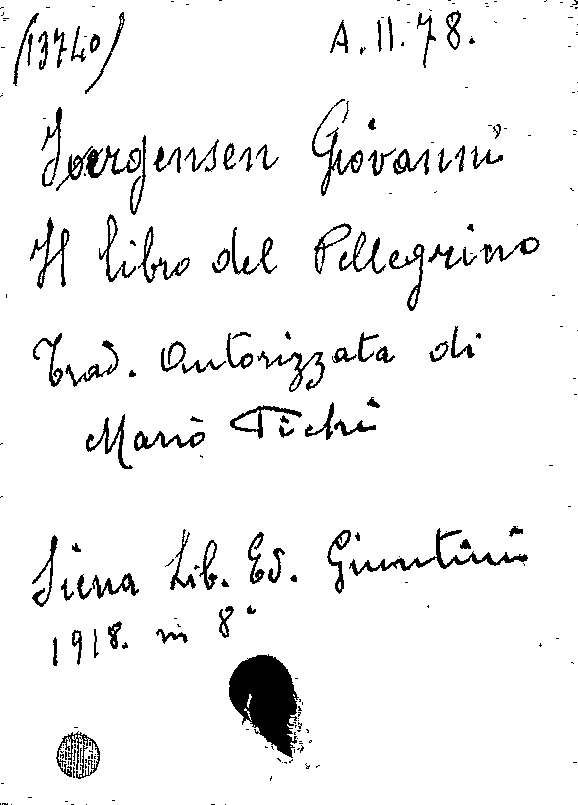 (13740) A.II.78.
Joergensen Giovanni
Il libro del Pellegrino
Trad. Autorizzata di
Mario Pichi
Siena Lib. Ed. Giuntini
1918. in 8°